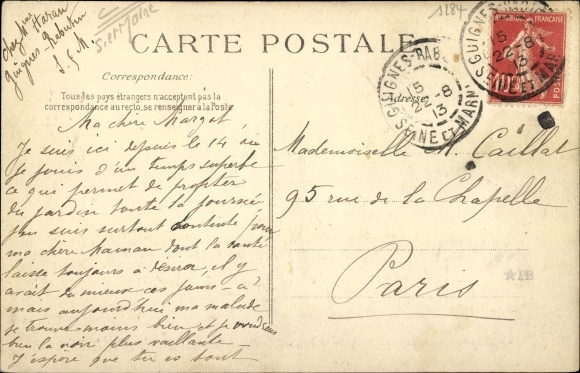 chez Mme Haran
Guignes-Rabutin
S. M.
S. et Marne
1284
CARTE POSTALE
Correspondance:
Tous les pays étrangers n'acceptent pas la
correspondance au recto, se renseigner à la Poste
Adresse
GUIGNES-RAB
15
22-8
13
SEINE ET MARNE
GUIGNES-RABUTIN
15
22-8
13
SEINE ET MARNE
RÉPUBLIQUE FRANÇAISE
10
POSTES
Ma chère Margot,
Je suis ici depuis le 14 où
je jouis d'un temps superbe
ce qui permet de profiter
du jardin toute la journée
j'en suis surtout contente pour
ma chère Maman dont la santé
laisse toujours à désirer, il y
avait du mieux ces jours-ci
mais aujourd'hui ma malade
se trouve moins bien et je voudrais
bien la voir plus vaillante -
J'espère que tu es tout
Mademoiselle M. Caillat
95 rue de la Chapelle
Paris
PB